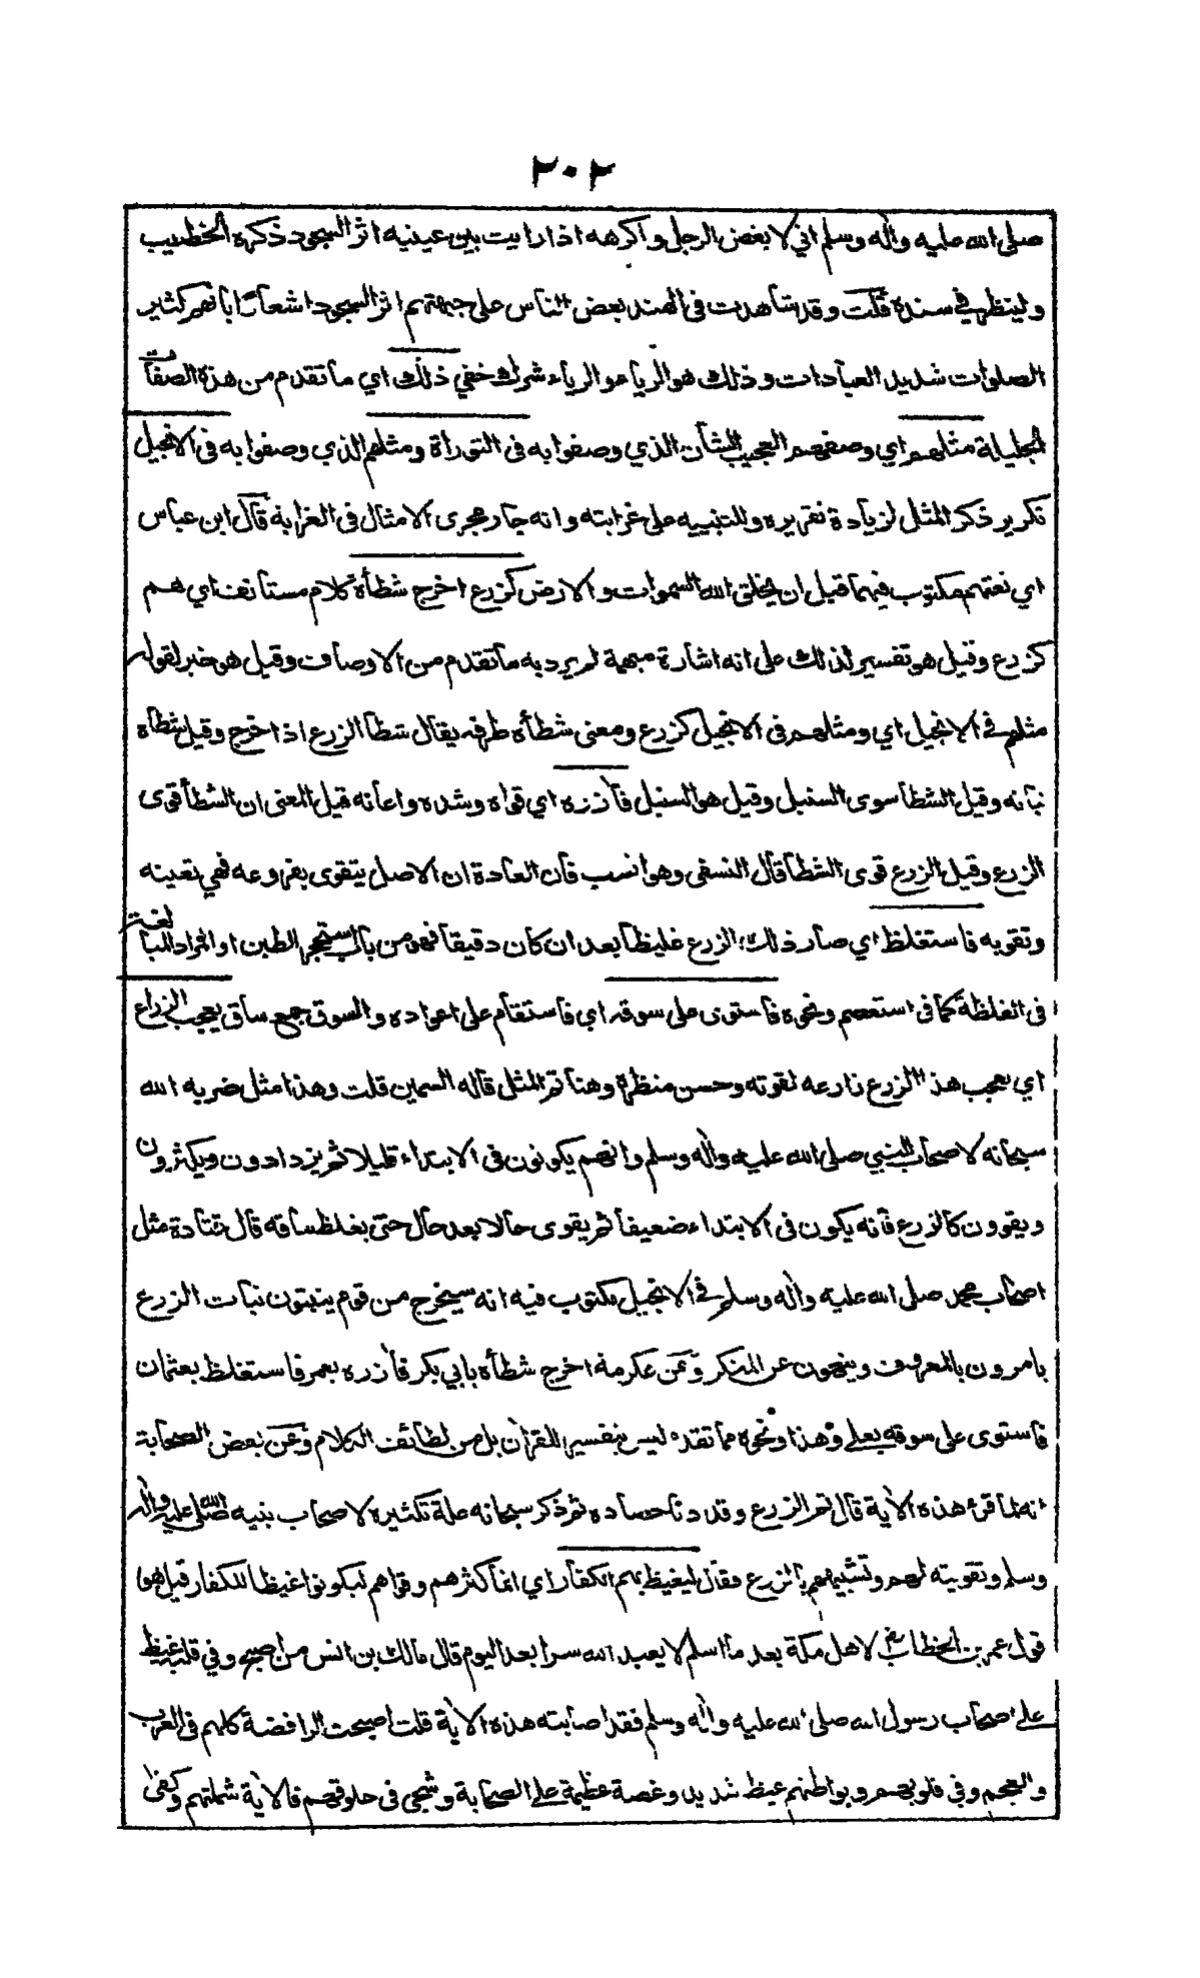 ٢٠٢
صلى الله عليه واٰله وسلم اني لا بغض الرجل واكرهه اذا رايت بين عينيه اثر السجود ذكره الخطيب
ولينظر في سنده قلت وقد شاهدت فى الهند بعض الناس على جبهتهم اثر السجود اشعارًا بانهم كثير
الصلوات شديد العبادات وذلك هو الرياء والرياء شرك خفي ذلك اي ما تقدم من هذه الصفات
الجليلة مثلهم اي وصفهم العجيب الشأن الذي وصفوا به فى التوراة ومثلهم الذي وصفوا به فى الانجيل
تكرير ذكر المثل لزيادة تقريره وللتنبيه على غرابته وانه جار مجرى الامثال فى الغرابة قال ابن عباس
اي نعتهم مكتوب فيهما قبل ان يخلق الله السموات والارض كزرع اخرج شطأه كلام مستأنف اي هم
كزرع وقيل هو تفسير لذلك على انه اشارة مبهمة لم يرد به ما تقدم من الاوصاف وقيل هو خبر لقوله
مثلهم في الانجيل اي ومثلهم فى الانجيل كزرع ومعنى شطأه طرفه يقال شطأ الزرع اذا خرج وقيل شطأه
نباته وقيل الشطأ سوى السنبل وقيل هو السنبل فاٰزره اي قواه وشده واعانه قيل المعنى ان الشطأ قوى
الزرع وقيل الزرع قوى الشطأ قال النسفى وهو انسب فان العادة ان الاصل يتقوى بفروعه فهي تعينه
وتقويه فاستغلظ اي صار ذلك الزرع غليظا بعد ان كان دقيقا فهو من باب استحجر الطين او المراد المبالغة
فى الغلظة كما فى استعصم ونحوه فاستوى على سوقه اي فاستقام على اعواده والسوق جمع ساق يعجب الزراع
اي يعجب هذا الزرع زارعه لقوته وحسن منظره وهنا تم المثل قاله السمين قلت وهذا مثل ضربه الله
سبحانه لاصحاب النبي صلى الله عليه واٰله وسلم وانهم يكونون فى الابتداء قليلا ثم يزدادون ويكثرون
ويقوون كالزرع فانه يكون فى الابتداء ضعيفا ثم يقوى حالا بعد حال حتى يغلظ ساقه قال قتادة مثل
اصحاب محمد صلى الله عليه واٰله وسلم في الانجيل مكتوب فيه انه سيخرج من قوم ينبتون نبات الزرع
يامرون بالمعروف وينهون عن المنكر وعن عكرمة اخرج شطأه بابي بكر فاٰزره بعمر فاستغلظ بعثمان
فاستوى على سوقه بعلي وهذا ونحوه مما تقدم ليس بتفسير للقراٰن بل من لطائف الكلام وعن بعض الصحابة
انه لما قرئ هذه الاٰية قال تم الزرع وقد دنا حصاده ثم ذكر سبحانه علة تكثيره لاصحاب بنيه صلى الله عليه واٰله
وسلم وتقويته لهم وتشبيههم بالزرع فقال ليغيظ بهم الكفار اي انما كثرهم وقواهم ليكونوا غيظا للكفار قيل هو
قول عمر بن الخطاب رض لاهل مكة بعد ما اسلم لا يعبد الله سرا بعد اليوم قال مالك بن انس من اصبح وفي قلبه غيظ
على اصحاب رسول الله صلى الله عليه واٰله وسلم فقد اصابته هذه الاٰية قلت اصبحت الرافضة كلهم فى العرب
والعجم وفي قلوبهم وبواطنهم غيظ شديد وغصة عظيمة على الصحابة وشجى فى حلوقهم فالاٰية شملتهم وكفى